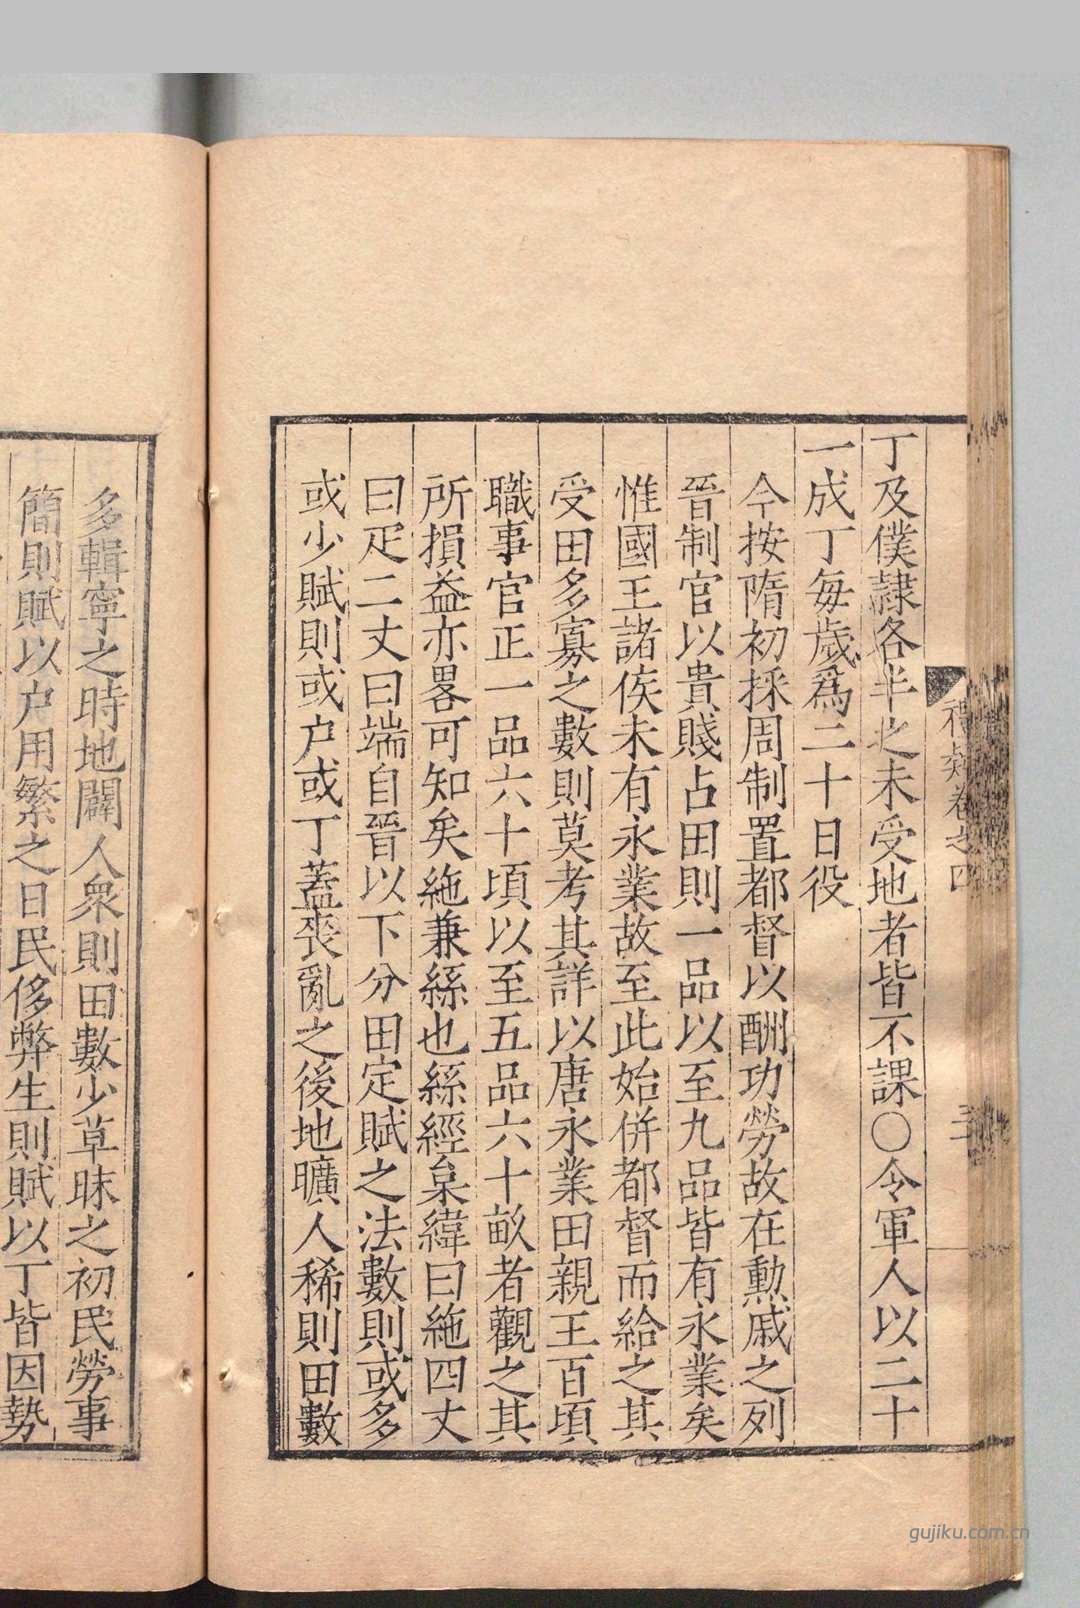 丁及僕隷各半之未受地者皆不課○令軍人以二十
一成丁每歲爲二十日役
今按隋初採周制置都督以酬功勞故在勳戚之列
晉制官以貴賤占田則一品以至九品皆有永業矣
惟國王諸侯未有永業故至此始併都督而給之其
受田多寡之數則莫考其詳以唐永業田親王百頃
職事官正一品六十頃以至五品六十畝者觀之其
所損益亦畧可知矣絁兼絲也絲經枲緯曰絁四丈
曰疋二丈曰端自晉以下分田定賦之法數則或多
或少賦則或户或丁蓋喪亂之後地曠人稀則田數
多輯寧之時地闢人衆則田數少草昧之初民勞事
簡則賦以户用繁之日民侈弊生則賦以丁皆因勢
卷之四
gujiku.com.cn